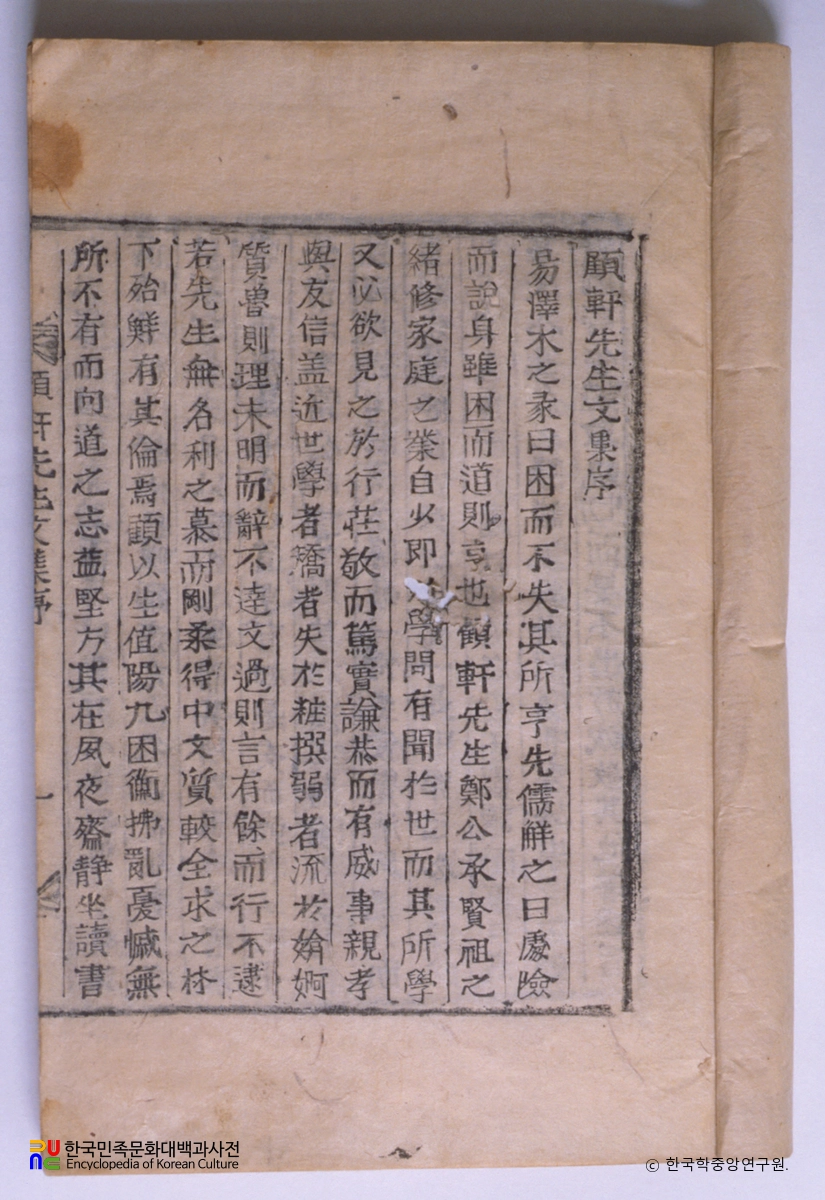 顧軒先生文集序
易澤水之彖曰困而不失其所亨先儒觧之曰處險
而說身雖困而道則亨也顧軒先生鄭公承賢祖之
緖修家庭之業自少即 學問有聞於世而其所學
又必欲見之於行莊敬而篤實謙恭而有威事親孝
與友信盖近世學者矯者失於粧撰弱者流於媕婀
質魯則理未明而辭不達文過則言有餘而行不逮
若先生無名利之慕而剛柔得中文質較全求之林
下殆鮮有其倫焉顧以生值陽九困衡拂亂憂慽無
所不有而向道之志益堅方其在夙夜齋静坐讀書
顧軒先生文集序
一
한국민족문화대백과사전
Encyclopedia of Korean Culture
© 한국학중앙연구원.